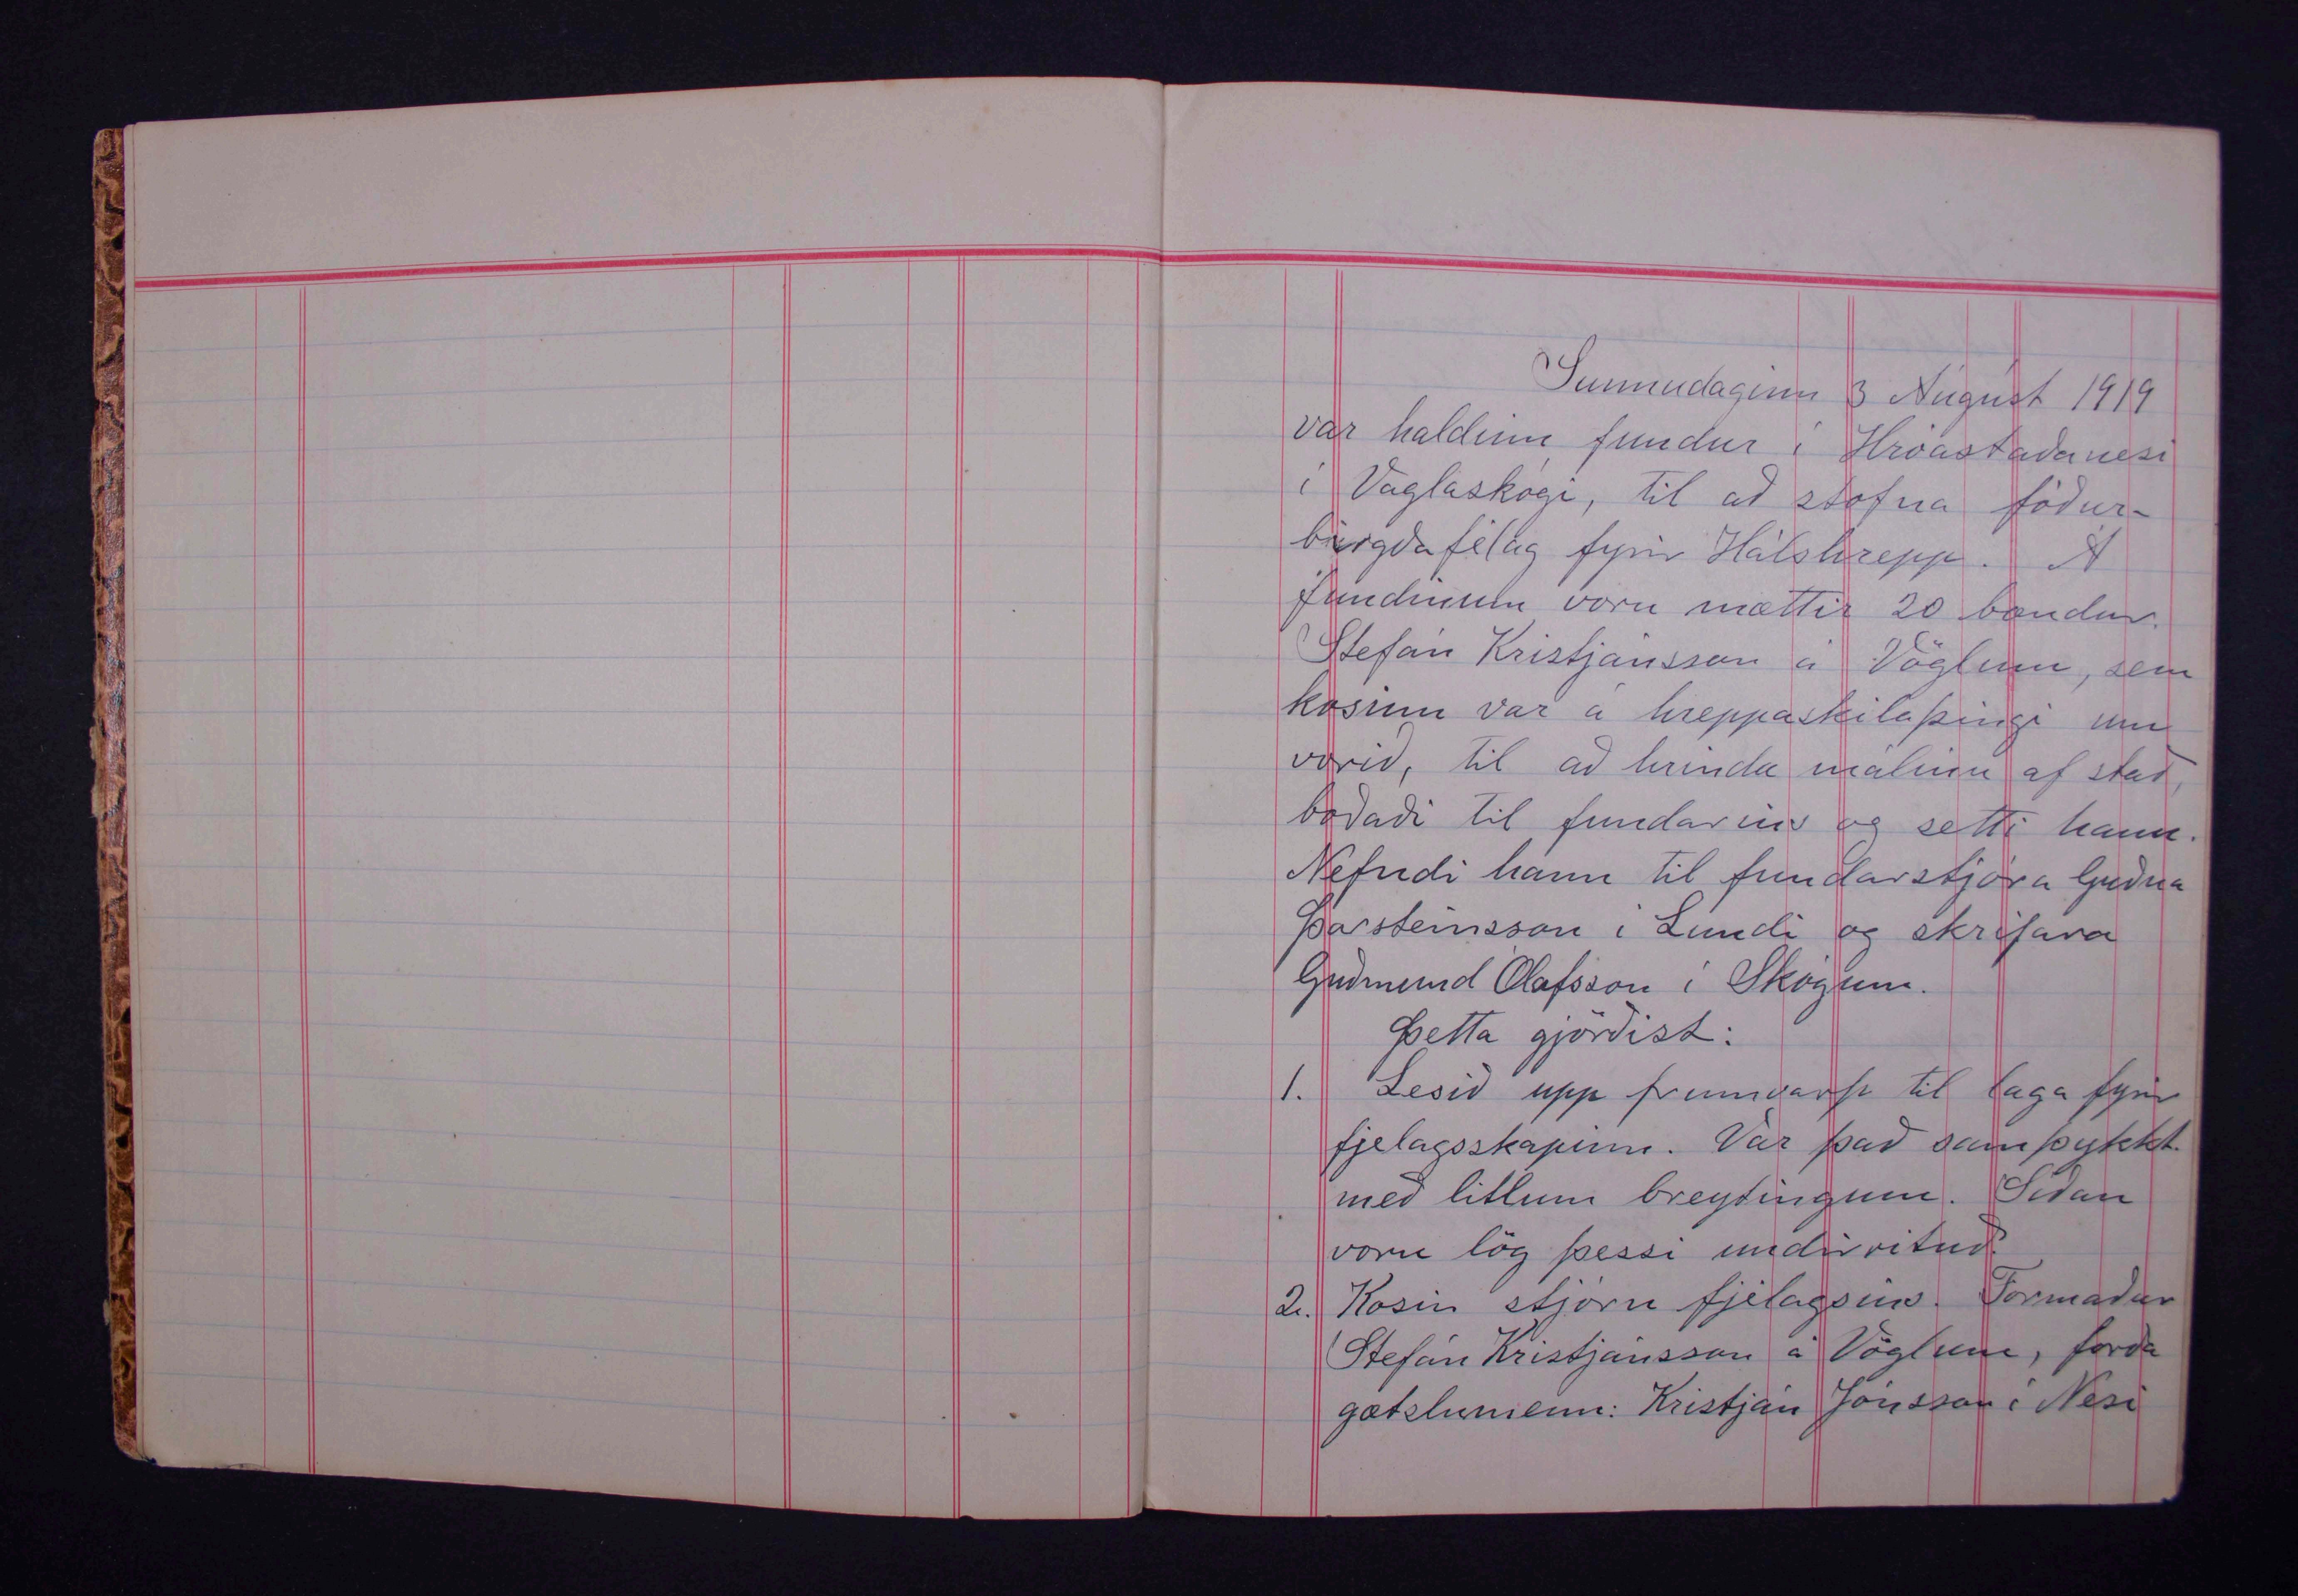 Sunnudaginn 3 Ágúst 1919
var haldinn fundur í Hróastaðanesi
í Vaglaskógi, til að stofna fóður-
birgðafélag fyrir Hálshrepp. Á
fundinum voru mættir 20 bændur.
Stefán Kristjánsson á Vöglum, sem
kosinn var á hreppaskilaþingi um
vorið, til að hrinda málinu af stað,
boðaði til fundarins og setti hann.
Nefndi hann til fundarstjóra Guðna
Þorsteinsson í Lundi og skrifara
Guðmund Ólafsson í Skógum.
Þetta gjörðist:
1. Lesið upp frumvarp til laga fyrir
fjelagsskapinn. Var það samþykkt
með litlum breytingum. Síðan
voru lög þessi undirrituð.
2. Kosin stjórn fjélagsins. Formaður
Stefán Kristjánsson á Vöglum, forða
gætslumenn: Kristján Jónsson í Nesi